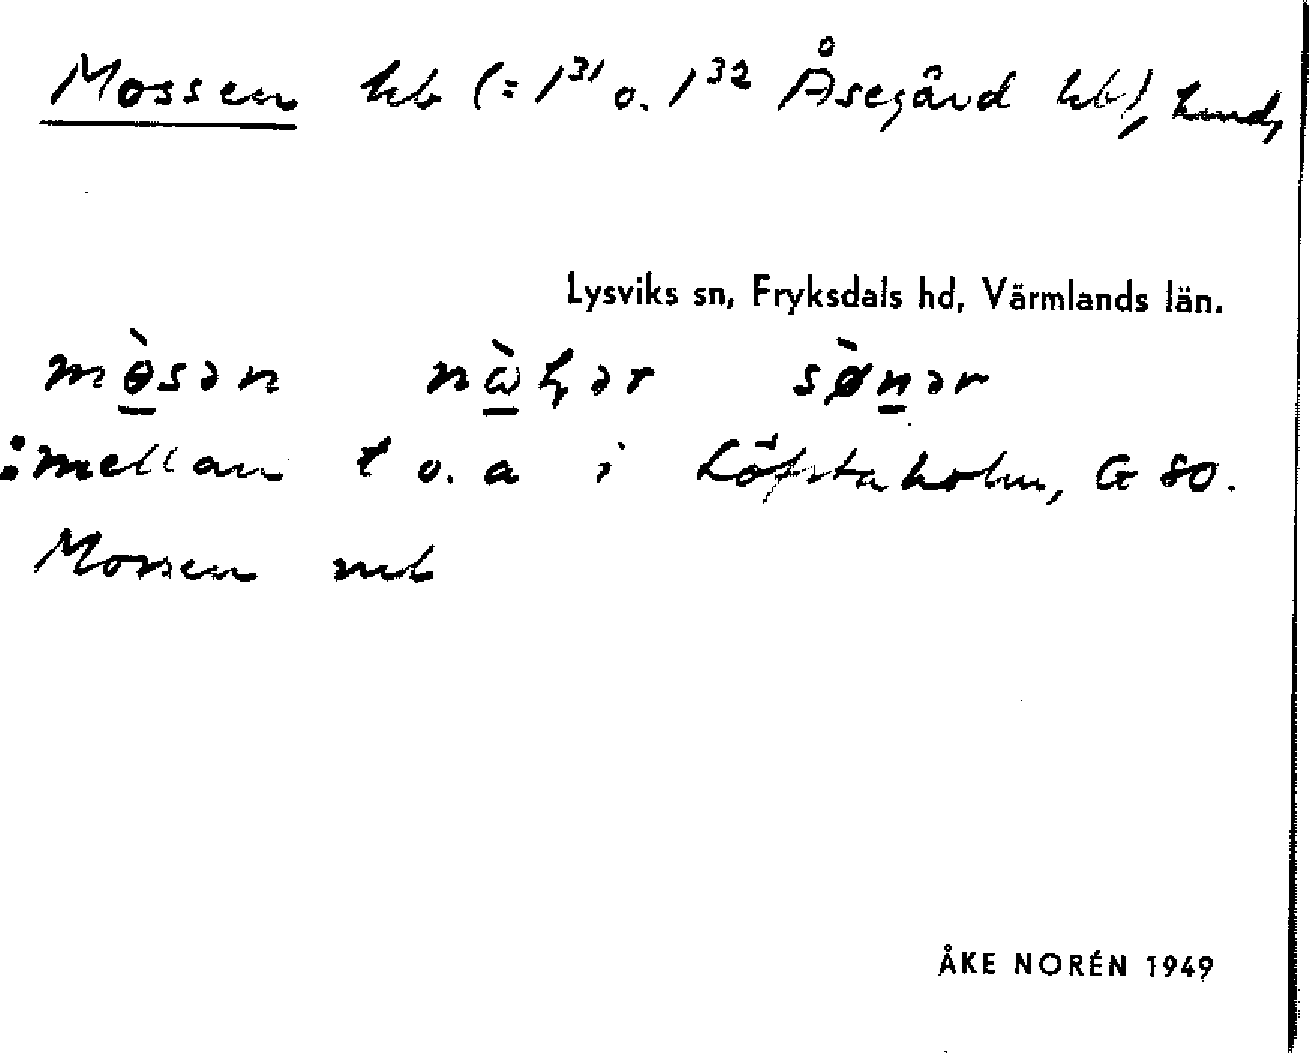 Mossen hb (= 1³¹ o. 1³² Åsegård hb), Lund,
Lysviks sn, Fryksdals hd, Värmlands län.
mellan t o. a i Löfstaholm, G 80.
Mossen mb
ÅKE NORÉN 1949